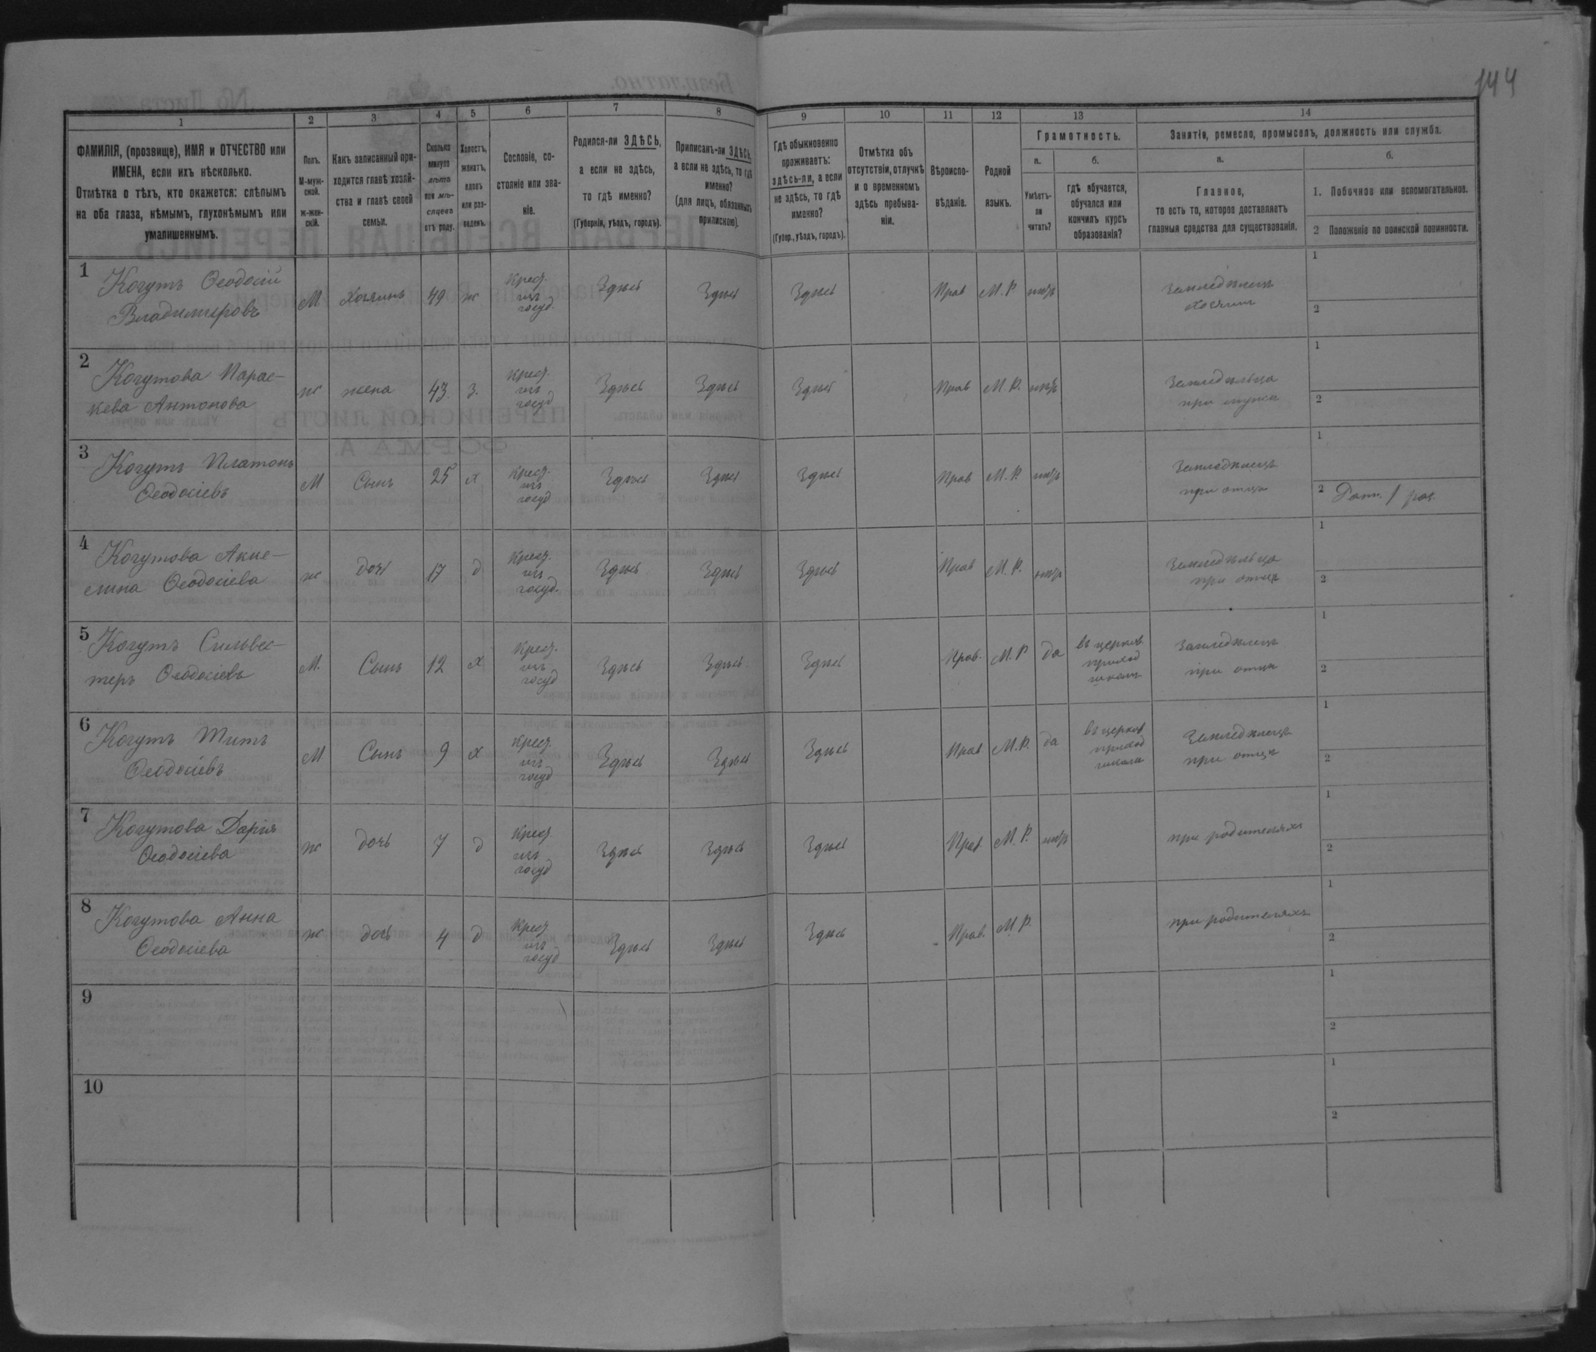 144
1
2
3
4
5
6
7
8
9
10
11
12
13
14
ФАМИЛІЯ, (прозвище), ИМЯ и ОТЧЕСТВО или
ИМЕНА, если ихъ нѣсколько.
Отмѣтка о тѣхъ, кто окажется: слѣпымъ
на оба глаза, нѣмымъ, глухонѣмымъ или
умалишеннымъ.
Полъ.
М-муж-
ской.
ж-жен-
скій.
Какъ записанный при-
ходится главѣ хозяй-
ства и главѣ своей
семьи.
Сколько
минуло
лѣтъ
или мѣ-
сяцевъ
отъ роду.
Холостъ,
женатъ,
вдовъ
или раз-
веденъ.
Сословіе, со-
стояніе или зва-
ніе.
Родился-ли ЗДѢСЬ,
а если не здѣсь,
то гдѣ именно?
(Губернія, уѣздъ, городъ).
Приписанъ-ли ЗДѢСЬ,
а если не здѣсь, то гдѣ
именно?
(для лицъ, обязанныхъ
припискою).
Гдѣ обыкновенно
проживаетъ:
здѣсь-ли, а если
не здѣсь, то гдѣ
именно?
(Губер., уѣздъ, городъ).
Отмѣтка объ
отсутствіи, отлучкѣ
и о временномъ
здѣсь пребыва-
ніи.
Вѣроиспо-
вѣданіе.
Родной
языкъ.
Грамотность.
а.
Умѣетъ-
ли
читать?
б.
гдѣ обучается,
обучался или
кончилъ курсъ
образованія?
Занятіе, ремесло, промыселъ, должность или служба.
а.
Главное,
то есть то, которое доставляетъ
главныя средства для существованія.
б.
1. Побочное или вспомогательное.
2 Положеніе по воинской повинности.
1
Когутъ Ѳеодосій
Владимировъ
М Хозяинъ 49 ж Крест. изъ госуд. Здѣсь Здѣсь Здѣсь Прав М.Р нѣтъ Земледѣлецъ хозяинъ
1
2
2
Когутова Парас-
кева Антонова
ж жена 43 з. Крест. изъ госуд Здѣсь Здѣсь Здѣсь Прав М.Р. нѣтъ Земледѣлица при мужѣ
1
2
3
Когутъ Платонъ
Ѳеодосіевъ
М Сынъ 25 х Крест. изъ госуд Здѣсь Здѣсь Здѣсь Прав М.Р. нѣтъ Земледѣлецъ при отцѣ
1
2
4
Когутова Аки-
лина Ѳеодосіева
ж доч 17 д Крест. изъ госуд. Здѣсь Здѣсь Здѣсь Прав М.Р. нѣтъ Земледѣлица при отцѣ
1
2
5
Когутъ Сильвес-
теръ Ѳеодосіевъ
М. Сынъ 12 х Крест. изъ госуд Здѣсь Здѣсь Здѣсь Прав. М.Р да въ церков приход школѣ Земледѣлецъ при отцѣ
1
2
6
Когутъ Титъ
Ѳеодосіевъ
М Сынъ 9 х Крест. изъ госуд Здѣсь Здѣсь Здѣсь Прав М.Р. да въ церков приход школѣ Земледѣлецъ при отцѣ
1
2
7
Когутова Дарія
Ѳеодосіева
ж дочь 7 д Крест изъ госуд Здѣсь Здѣсь Здѣсь Прав М.Р. нѣтъ при родителяхъ
1
2
8
Когутова Анна
Ѳеодосіева
ж дочь 4 д Крест изъ госуд Здѣсь Здѣсь Здѣсь Прав. М.Р. при родителяхъ
1
2
9
1
2
10
1
2